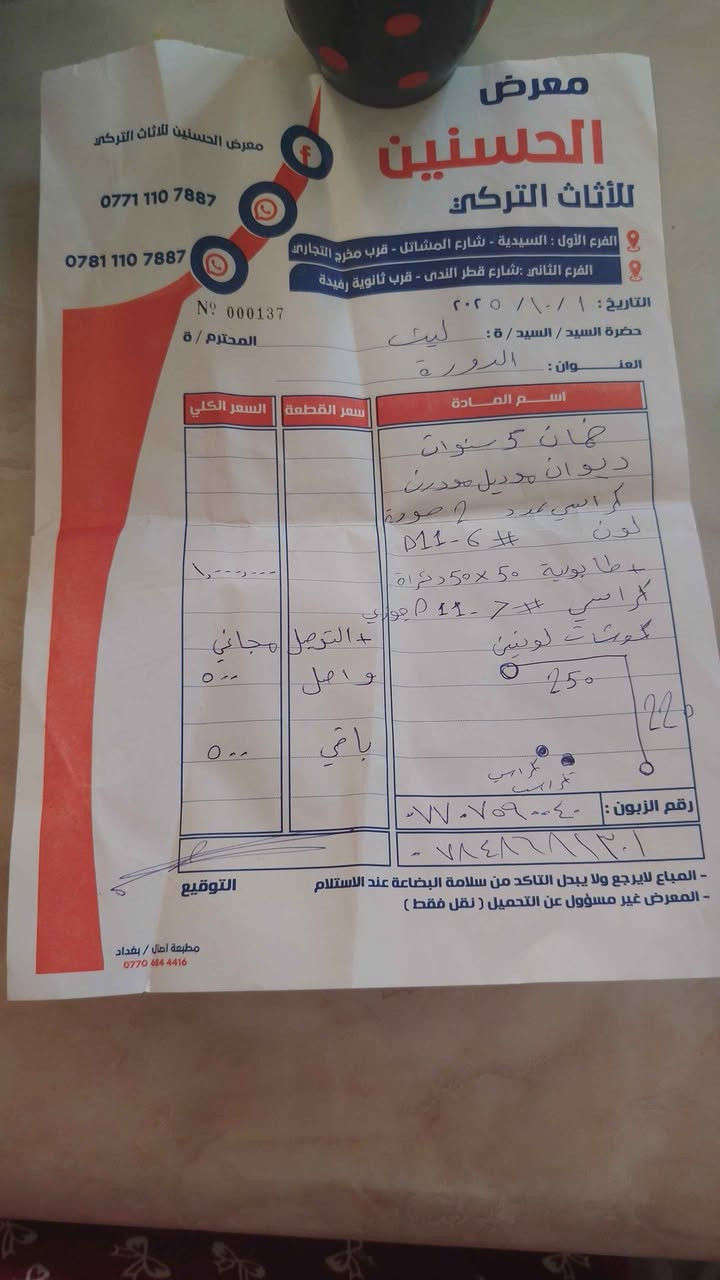 معرض
الحسنين
للأثاث التركي
معرض الحسنين للاثاث التركي
0771 110 7887
0781 110 7887
الفرع الأول : السيدية - شارع المشاتل - قرب مخرج التجاري
الفرع الثاني :شارع قطر الندى - قرب ثانوية رفيدة
Nº 000137
التاريخ : ١ / ١٠ / ٢٠٢٥
حضرة السيد / السيد / ة : ليث المحترم / ة
العنـــــوان : الدورة
اســـم المـــادة سعر القطعة السعر الكلي
ضمان 5 سنوات
ديوان موديل مودرن
كراسي عدد 2 صورة
لون # D11-6
+ طابوية 50×50 دائرة ١٠٠٠٠٠٠
كراسي # D11-7 جوزي
كوشات لونين + التوصل مجاني
250 واصل ٥٠٠
220
باقي ٥٠٠
كراسي
كراسي
رقم الزبون : ٠٧٧٠٧٥٩٠٠٤٠
٠٧٨٤٨٦٨١٣٠١
- المباع لايرجع ولا يبدل التاكد من سلامة البضاعة عند الاستلام
التوقيع
- المعرض غير مسؤول عن التحميل ( نقل فقط )
مطبعة امال / بغداد
0770 684 4416